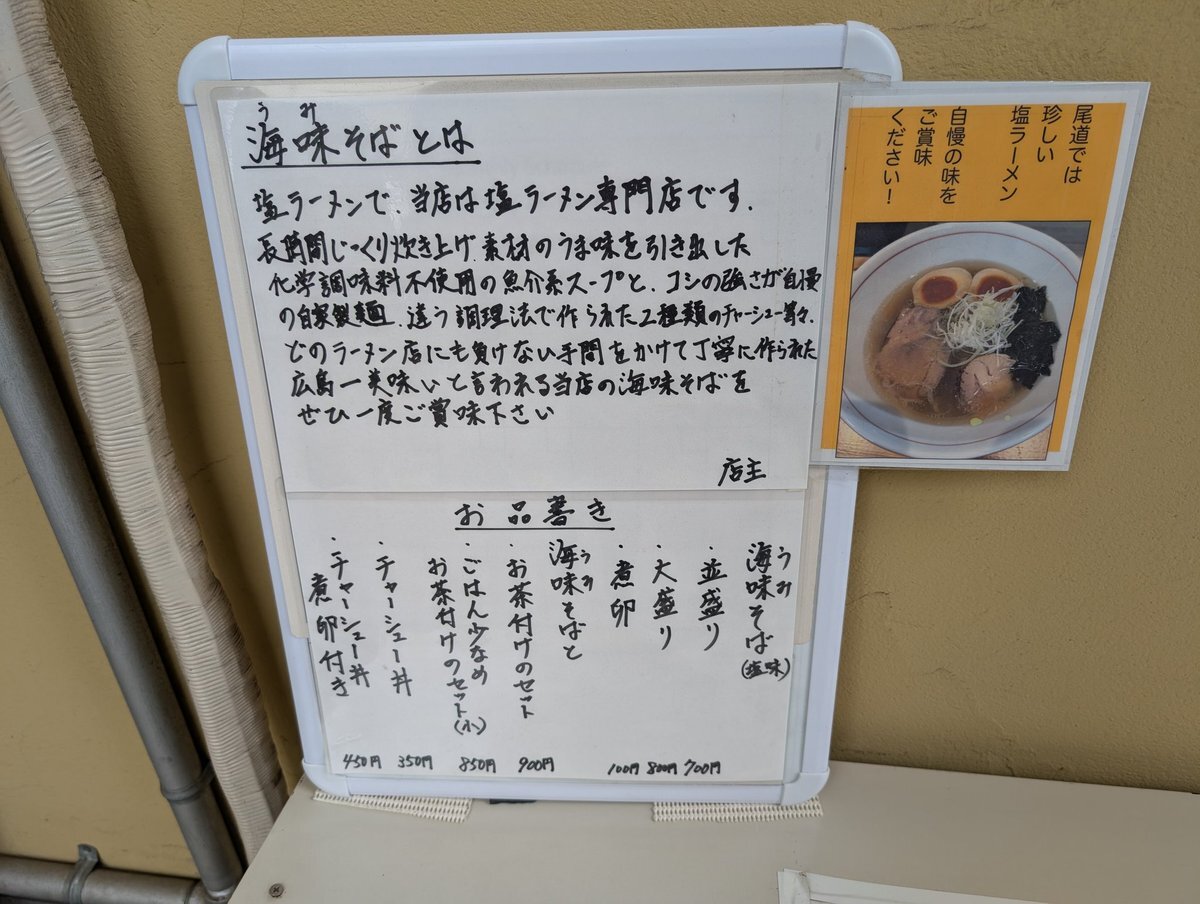 うみ
海味そばとは
塩ラーメンで、当店は塩ラーメン専門店です.
長時間じっくり炊き上げ素材のうま味を引き出した
化学調味料不使用の魚介系スープと、コシの強さが自慢
の自家製麺、違う調理法で作られた2種類のチャーシュー等々、
どのラーメン店にも負けない手間をかけて丁寧に作られた
広島一美味いと言われる当店の海味そばを
ぜひ一度ご賞味下さい
店主
尾道では
珍しい
塩ラーメン
自慢の味を
ご賞味
ください!
お品書き
うみ
海味そば(塩味)
・並盛り 700円
・大盛り 800円
・煮卵 100円
うみ
海味そばと
・お茶付けのセット 900円
・ごはん少なめ
お茶付けのセット(小) 850円
・チャーシュー丼 350円
・チャーシュー丼
煮卵付き 450円